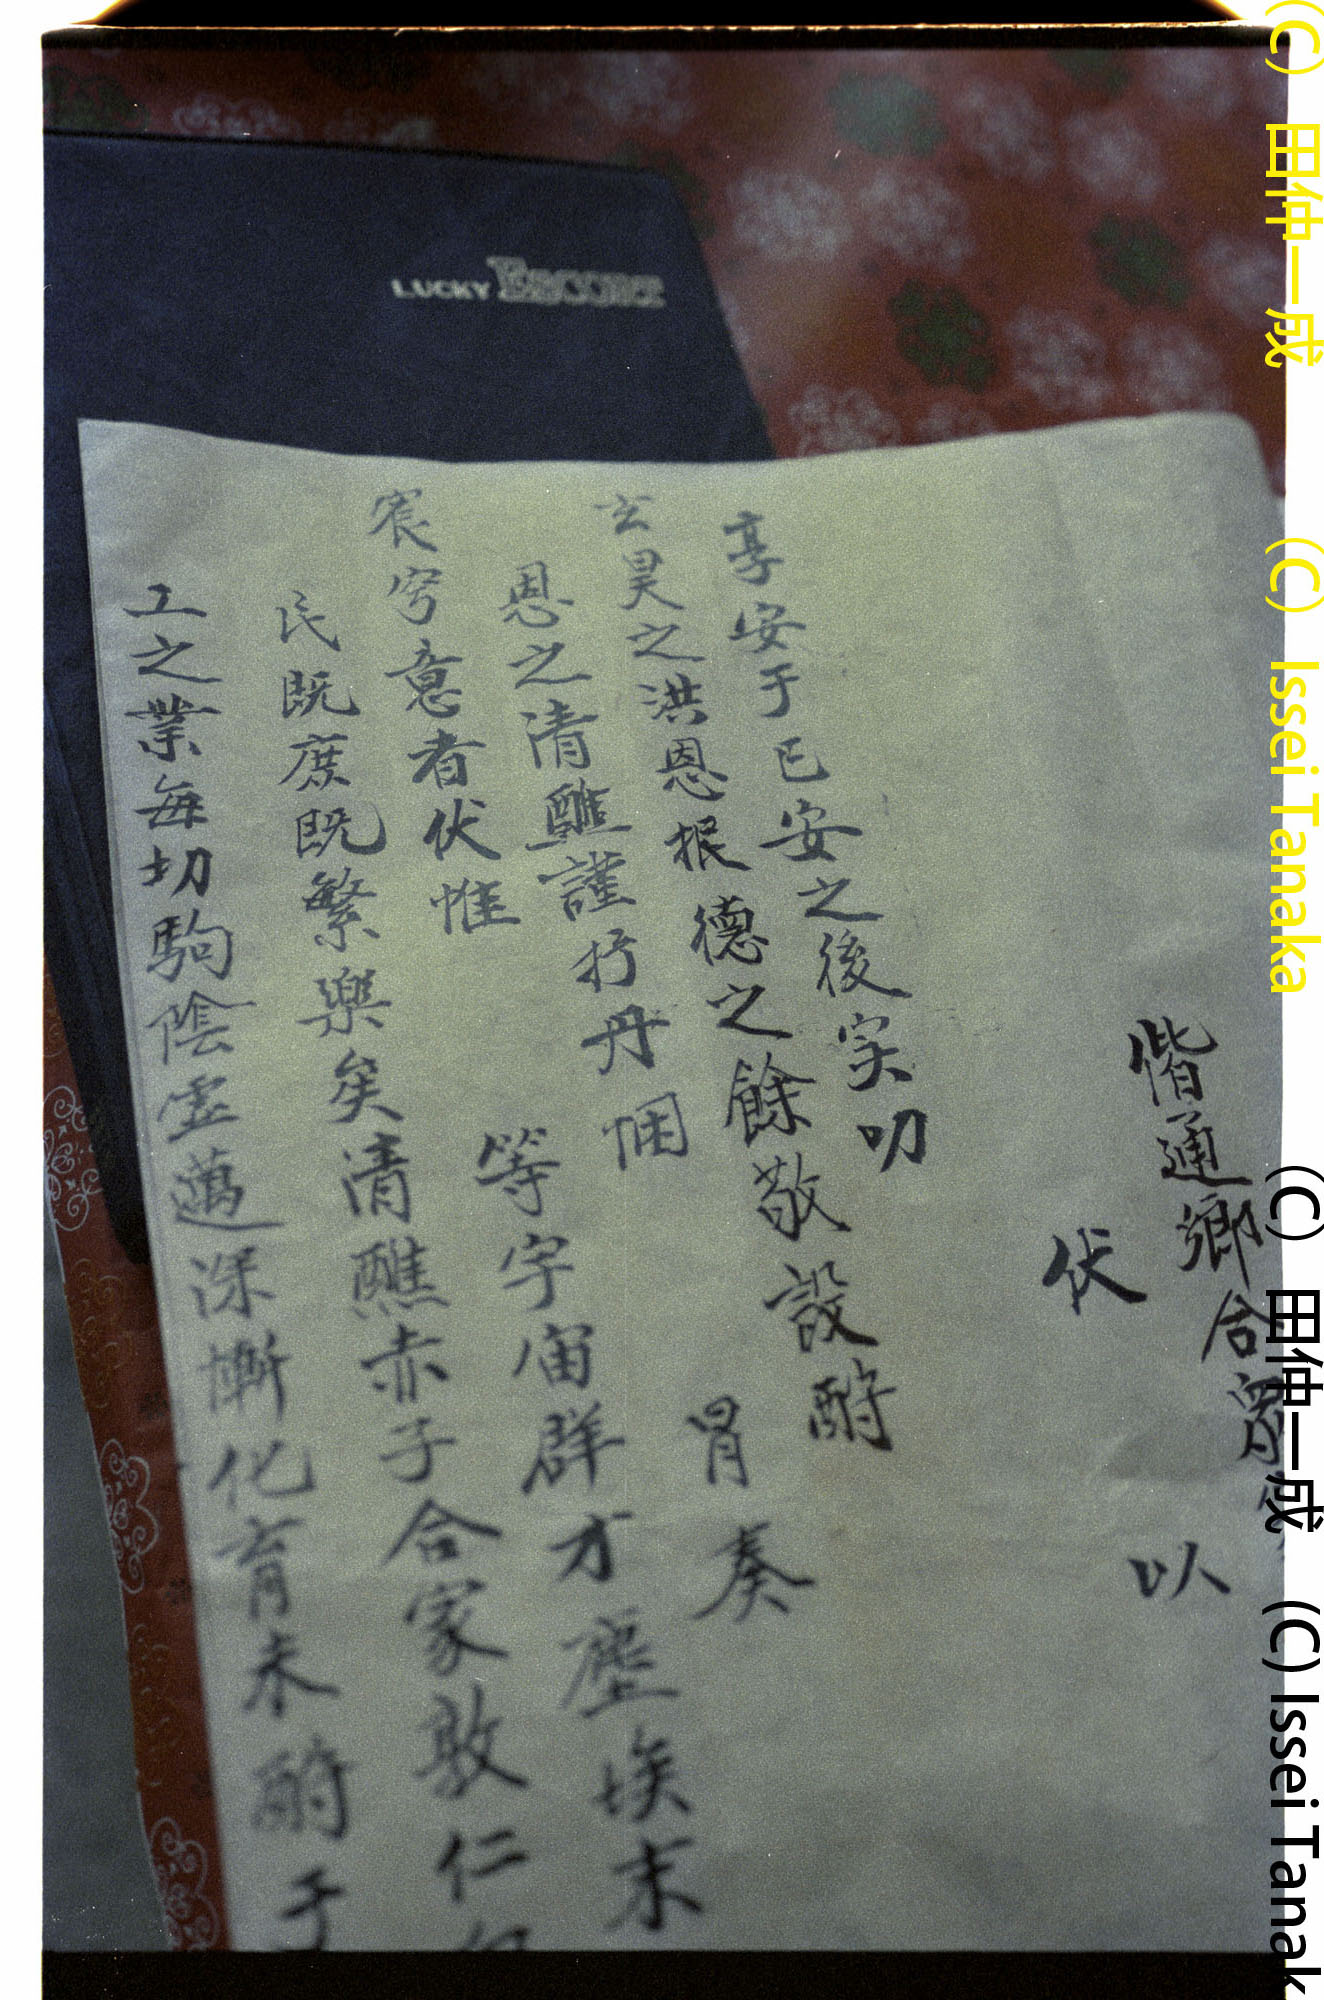 偕通鄉合眾
以
伏
享安于已安之後寔叨
玄昊之洪恩抿德之餘敬設酧
恩之清醮謹抒丹悃
冐奏
宸穹意者伏惟
等宇宙群才塵埃末
民既庶既繁樂矣清醮赤子合家敢仁
工之業每切駒陰虛邁深慚化育未酧于
LUCKY ESCORT
(C) 田仲一成 (C) Issei Tanaka
(C) 田仲一成 (C) Issei Tanak